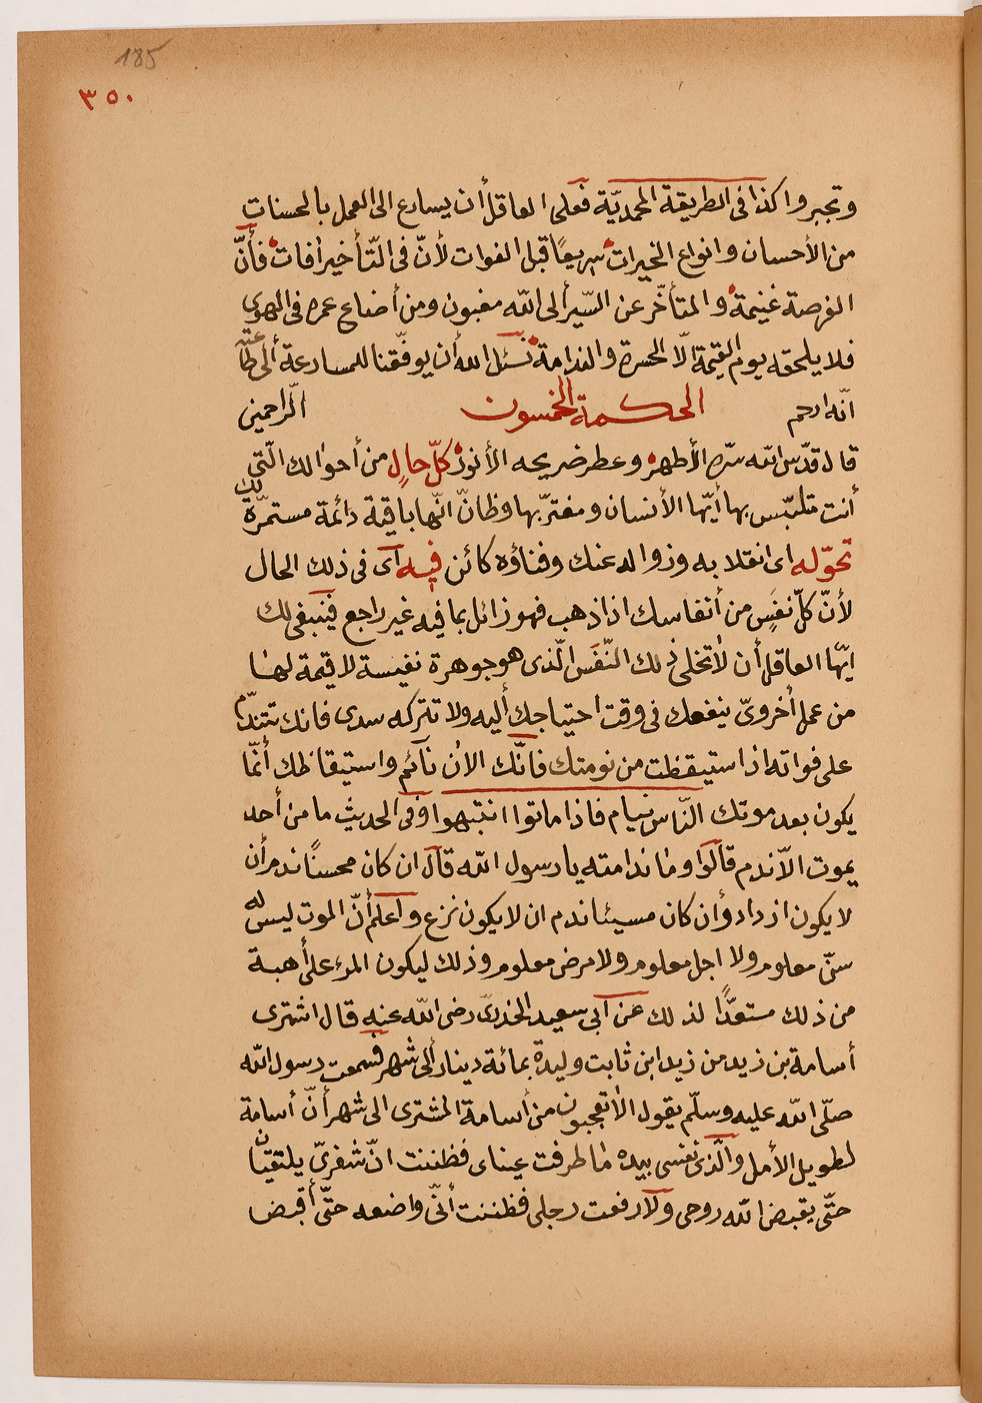 185
٣٥٠
وتجبروا كذا فى الطريقة المحمديّة فعلى العاقل أن يسارع الى العمل بالحسنات
من الأحسان وانواع الخيرات سريعًا قبل الفوات لأنّ فى التّأخير أفات فأنّ
الفرصة غنيمة والمتأخّر عن السّير ألى الله مغبون ومن أضاع عمره فى الهوى
فلا يلحقه يوم القيمة الّا الحسرة والندامة نسئل الله أن يوفّقنا للمسارعة ألى طاعته
انّه ارحم الرّاحمين
الحكمة الخمسون
قال قدّس الله سرّه الأطهر وعطر ضريحه الأنور كلّ حالٍ من أحوالك الّتى
أنت متلبّس بها أيّها الأنسان ومغترّ بها وظانّ انّها باقية دائمة مستمرّة لك
تحوّله اى انقلابه وزواله عنك وفناؤه كائن فيه اى فى ذلك الحال
لأنّ كلّ نفَسٍ من أنفاسك اذا ذهب فهو زائل بما فيه غير راجع فينبغى لك
ايّها العاقل أن لا تخلى ذلك النّفَس الّذى هو جوهرة نفيسة لا قيمة لها
من عمل أخروىّ ينفعك فى وقت احتياجك أليه ولا تتركه سدى فانك تتندّم
على فواته اذ استيقظت من نومتك فانّك الأن نائم واستيقاظك أنّما
يكون بعد موتك النّاس نيام فاذا ماتوا انتبهوا وفى الحديث ما من أحد
يموت الّا ندم قالوا وما ندامته يا رسول الله قال ان كان محسنًا ندم أن
لا يكون ازداد وأن كان مسيئا ندم ان لا يكون نزع واعلم أنّ الموت ليس له
سنّ معلوم ولا اجل معلوم ولا مرض معلوم وذلك ليكون المرء على أهبة
من ذلك مستعدًّا لذلك عن ابى سعيد الخدرىّ رضى الله عنه قال اشترى
أسامة بن زيد من زيد ابن ثابت وليدة بمائة دينار ألى شهر فسمعت رسول الله
صلّى الله عليه وسلّم يقول الا تعجبون من أسامة المشترى الى شهر أنّ أسامة
لطويل الأمل والّذى نفسى بيده ما طرفت عيناى فظننت انّ شفرىّ يلتقيان
حتّى يقبض الله روحى ولا رفعت رجلى فظننت أنّى واضعه حتّى أقبض